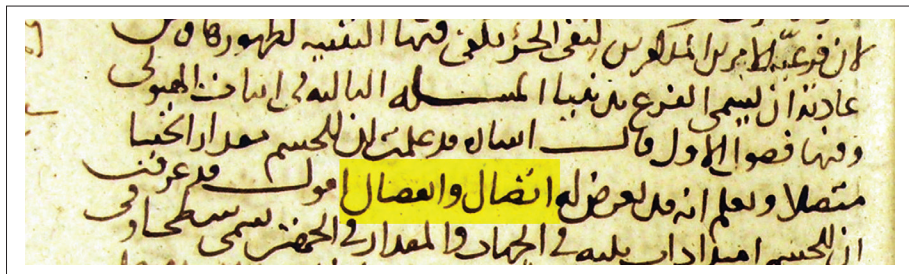 لان فرعية الامرين المذكورين لنفى الجزء يكفى فيها التنبيه لظهورها ومن
عادته ان يسمى الفرع تذنيبا المسئله الثالثه فى اثبات الهيولى
وفيها فصول الاول قال اشاره قد علمت ان للجسم مقدارا ثخينا
متصلا وتعلم انه قد يعرض له اتصال وانفصال اقول قد عرفت
ان للجسم امتدادات ثلثه فى الجهات والمقدار فى الجهتين يسمى سطحا وفى